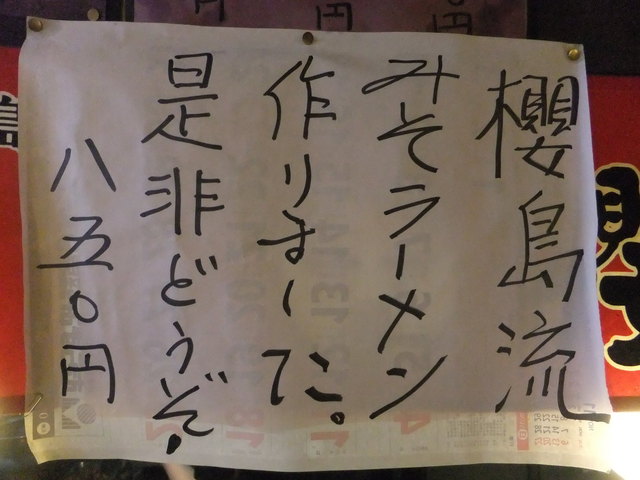 櫻島流
みそラーメン
作りました。
是非どうぞ。
八五〇円
円
円
〇円